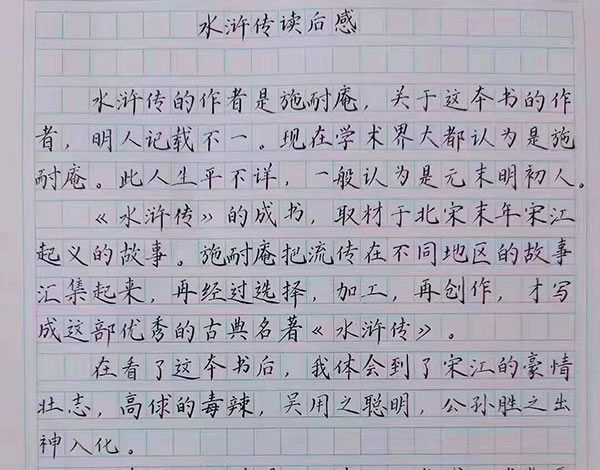 水浒传读后感
水浒传的作者是施耐庵，关于这本书的作
者，明人记载不一。现在学术界大都认为是施
耐庵。此人生平不详，一般认为是元末明初人。
《水浒传》的成书，取材于北宋末年宋江
起义的故事。施耐庵把流传在不同地区的故事
汇集起来，再经过选择，加工，再创作，才写
成这部优秀的古典名著《水浒传》。
在看了这本书后，我体会到了宋江的豪情
壮志，高俅的毒辣，吴用之聪明，公孙胜之出
神入化。